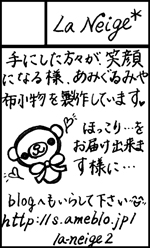 La Neige*
手にした方々が笑顔
になる様、あみぐるみや
布小物を製作しています♥
ほっこり…を
お届け出来ま
す様に…
blogへもいらして下さい
http://s.ameblo.jp/
la-neige2